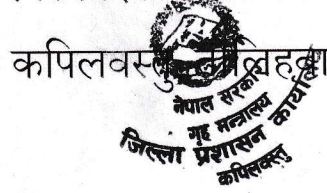 कपिलवस्तु
नेपाल सरकार
गृह मन्त्रालय
जिल्ला प्रशासन कार्यालय
कपिलवस्तु